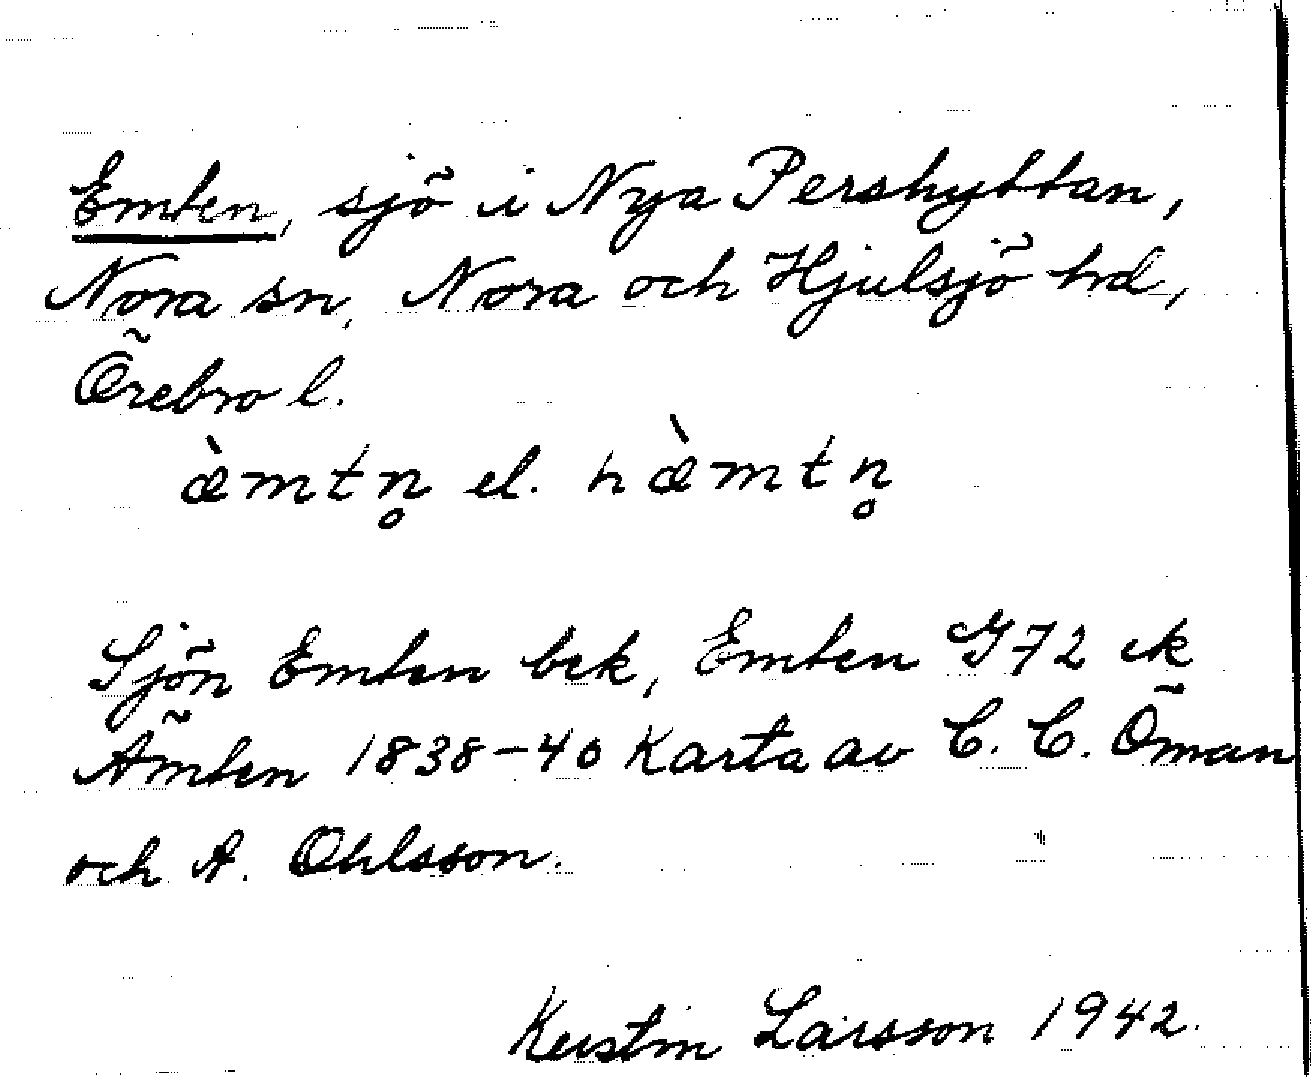 Emten, sjö i Nya Pershyttan,
Nora sn, Nora och Hjulsjö hd,
Örebro l.
æ̀mtn̥ el. hæ̀mtn̥
Sjön Emten bek, Emten G72 ek
Ämten 1838–40 Karta av C. C. Öman
och A. Ohlsson.
Kerstin Larsson 1942.